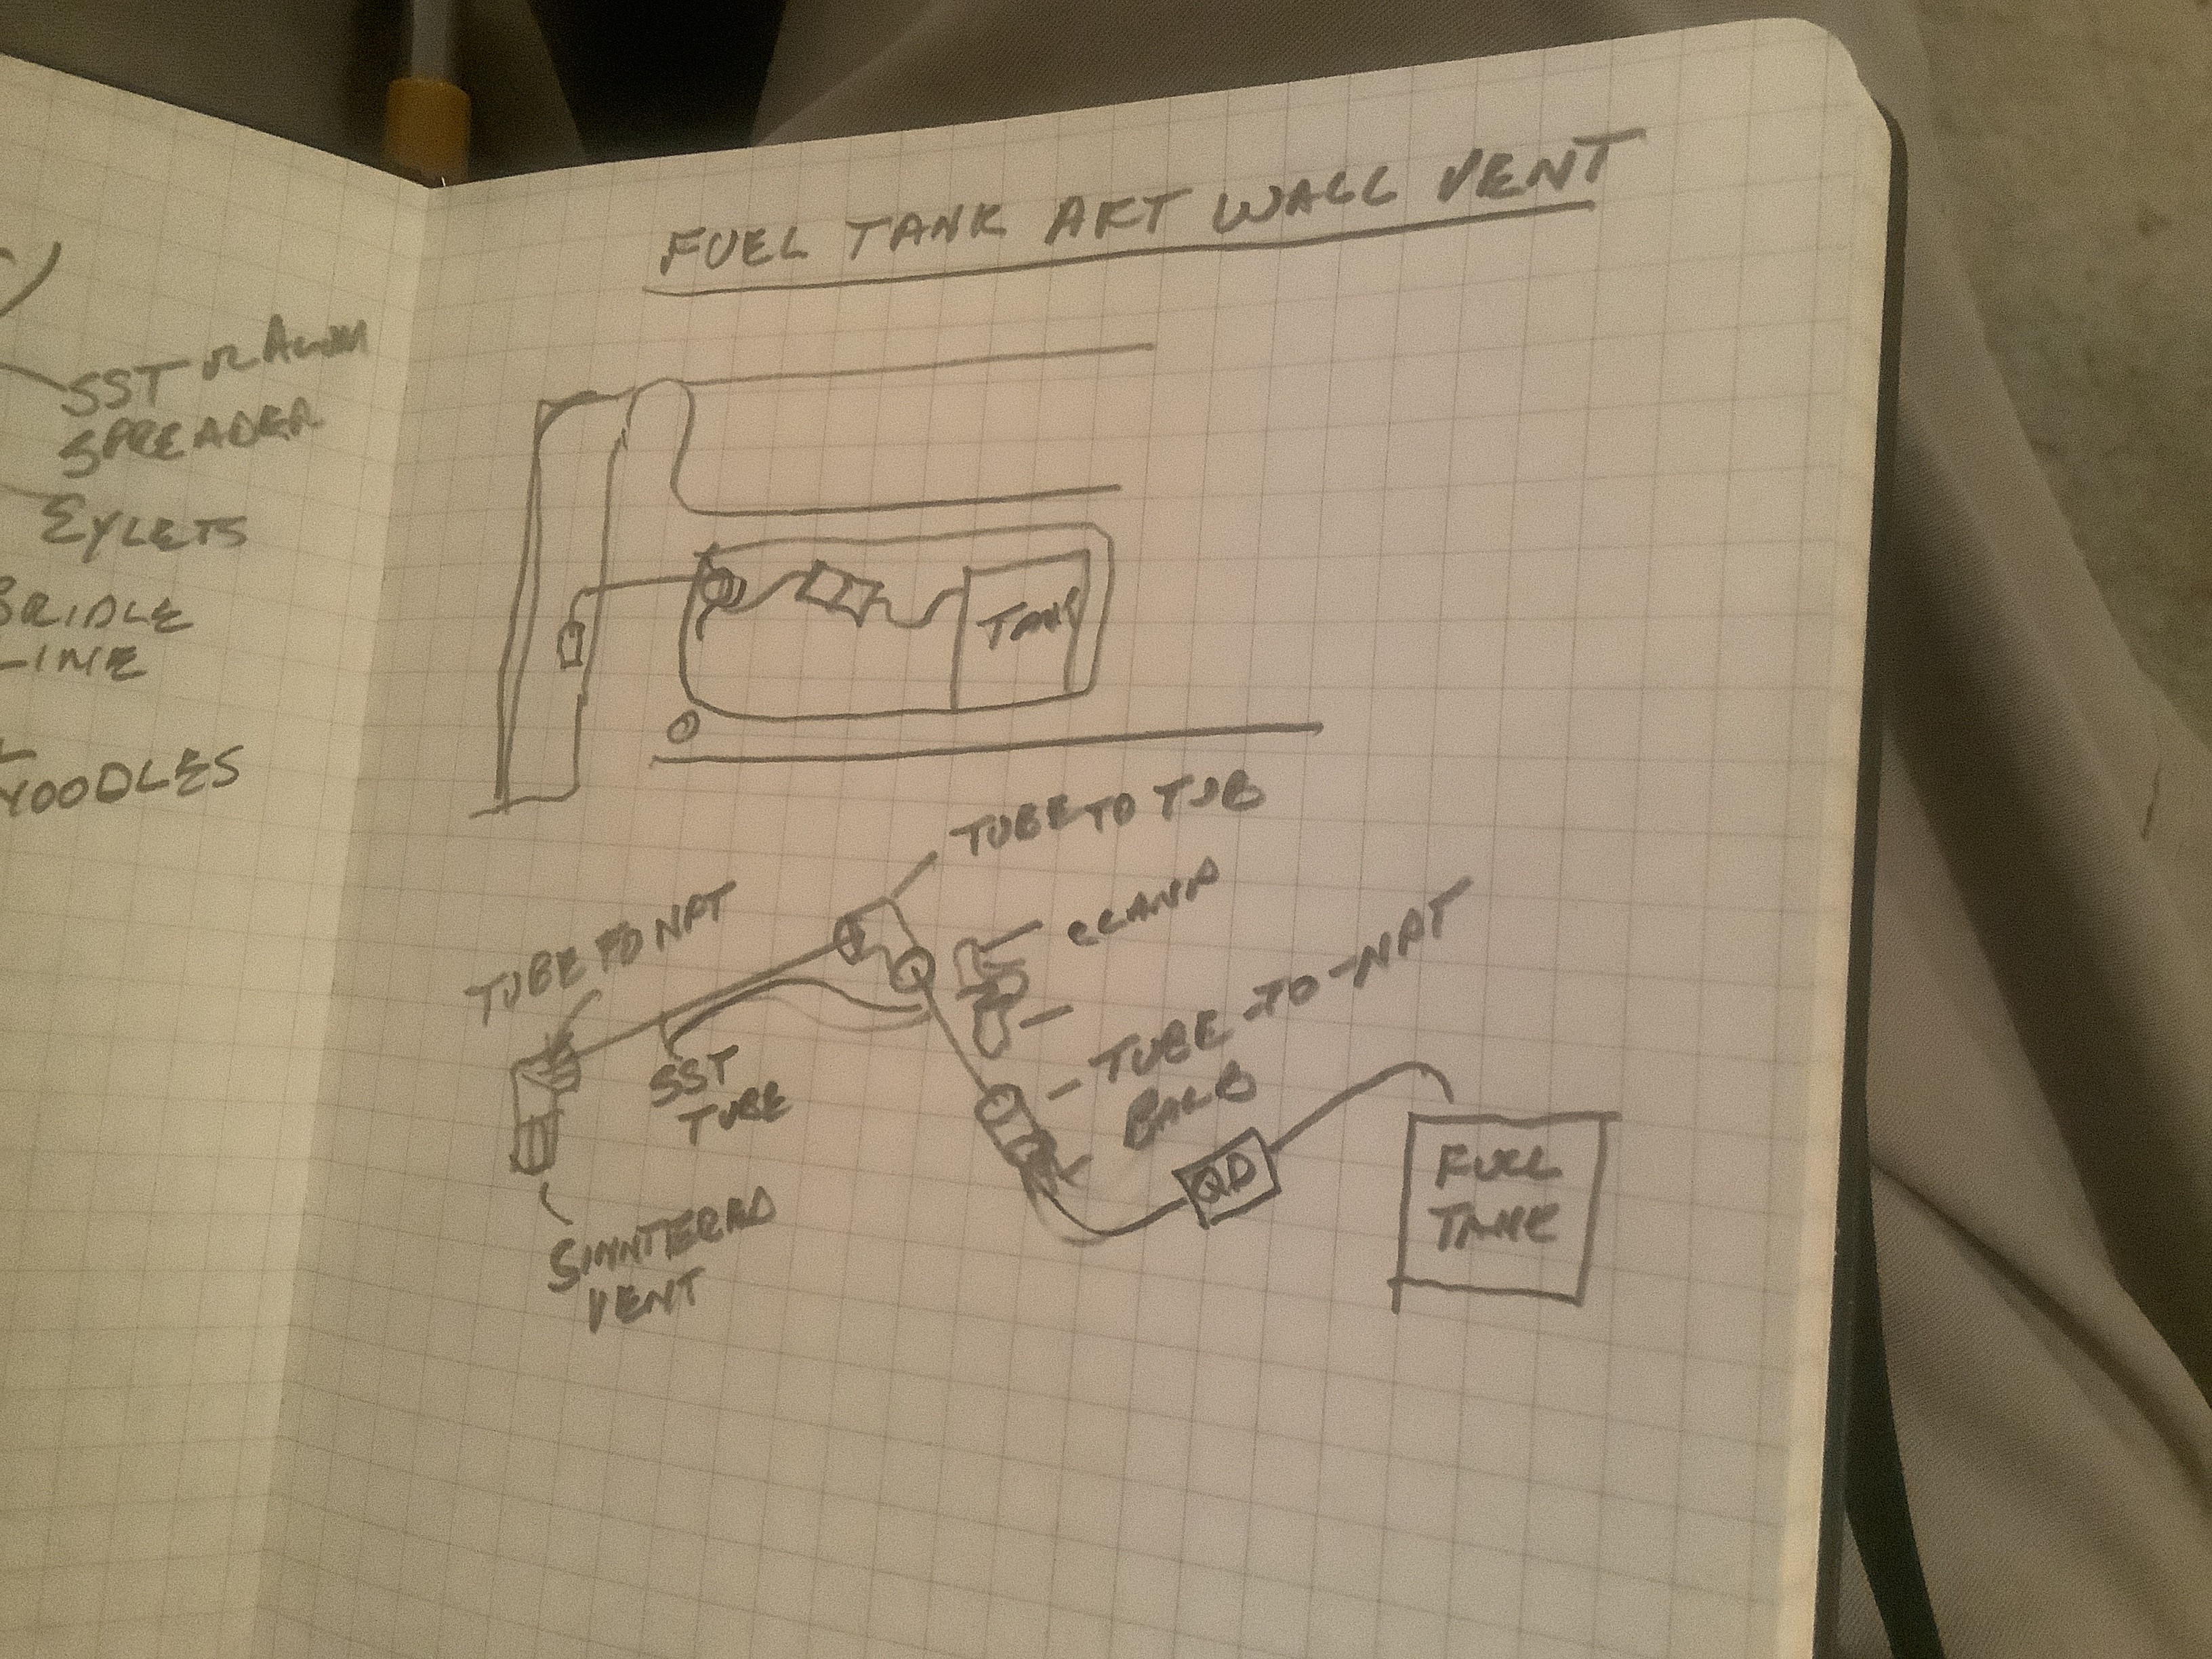 SST or ALUM
SPREADER
EYLETS
BRIDLE
LINE
NOODLES
FUEL TANK AFT WALL VENT
TANK
TUBE TO TUB
CLAMP
TUBE TO NPT
TUBE-TO-NPT
BARB
SST
TUBE
QD
FUEL
TANK
SINNTERED
VENT